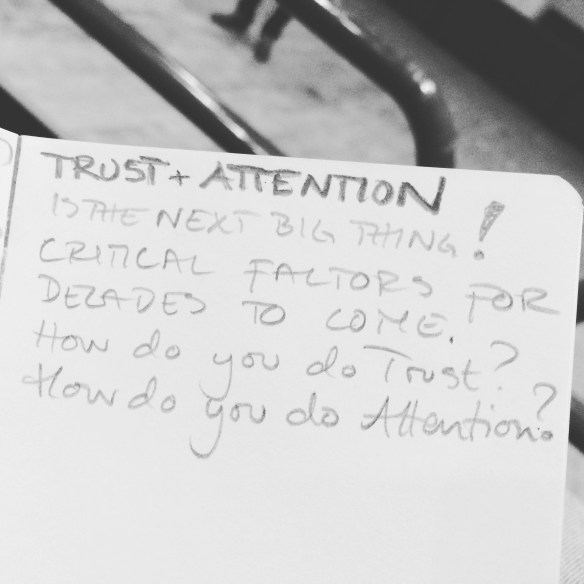 TRUST + ATTENTION
IS THE NEXT BIG THING!
CRITICAL FACTORS FOR
DECADES TO COME.
How do you do Trust?
How do you do Attention?